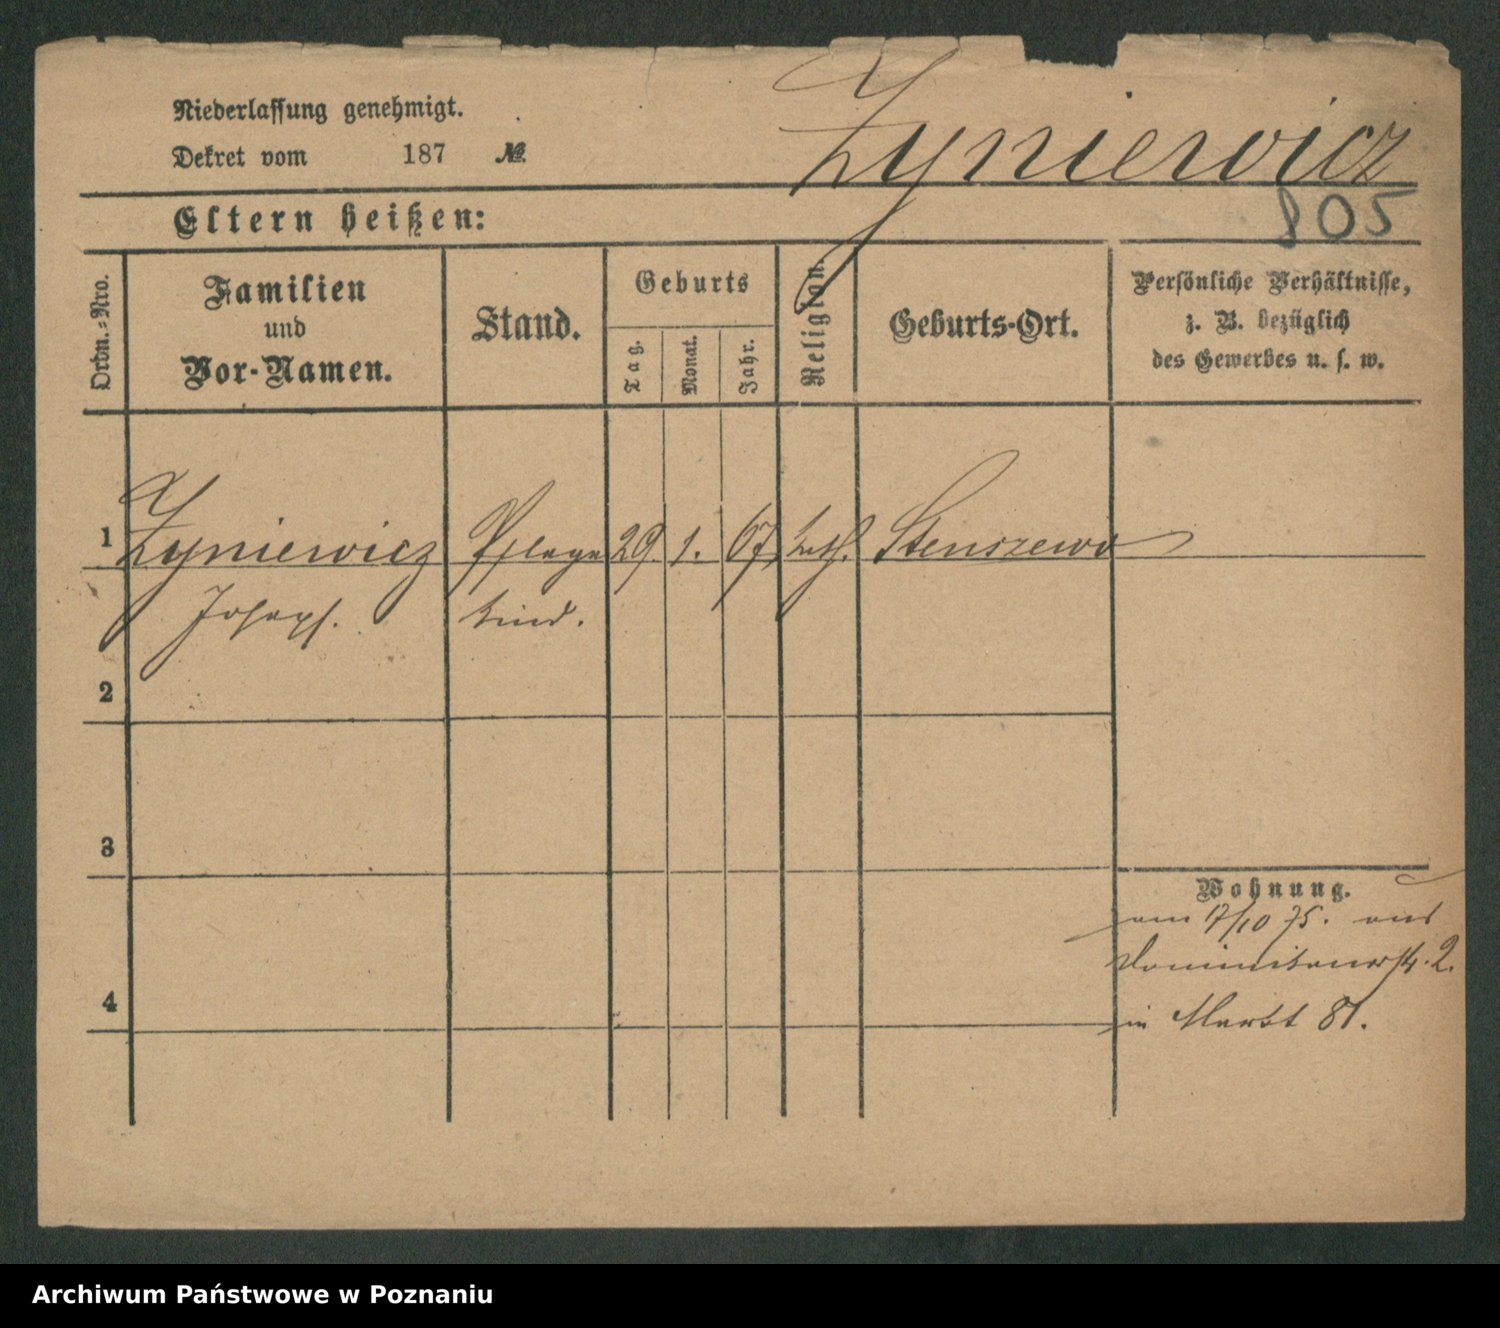 Niederlassung genehmigt.
Dekret vom 187 №
Zyniewicz
805
Eltern heißen:
Ordn.-Nro.
Familien
und
Vor-Namen.
Stand.
Geburts
Tag.
Monat.
Jahr.
Religion.
Geburts-Ort.
Persönliche Verhältnisse,
z. B. bezüglich
des Gewerbes u. s. w.
1 Zyniewicz Pflege 29. 1. 67. kath. Stenszewo
Joseph. kind.
2
3
4
Wohnung.
am 17/10 75. aus
Dominikanerstr. 2.
in Markt 81.
Archiwum Państwowe w Poznaniu